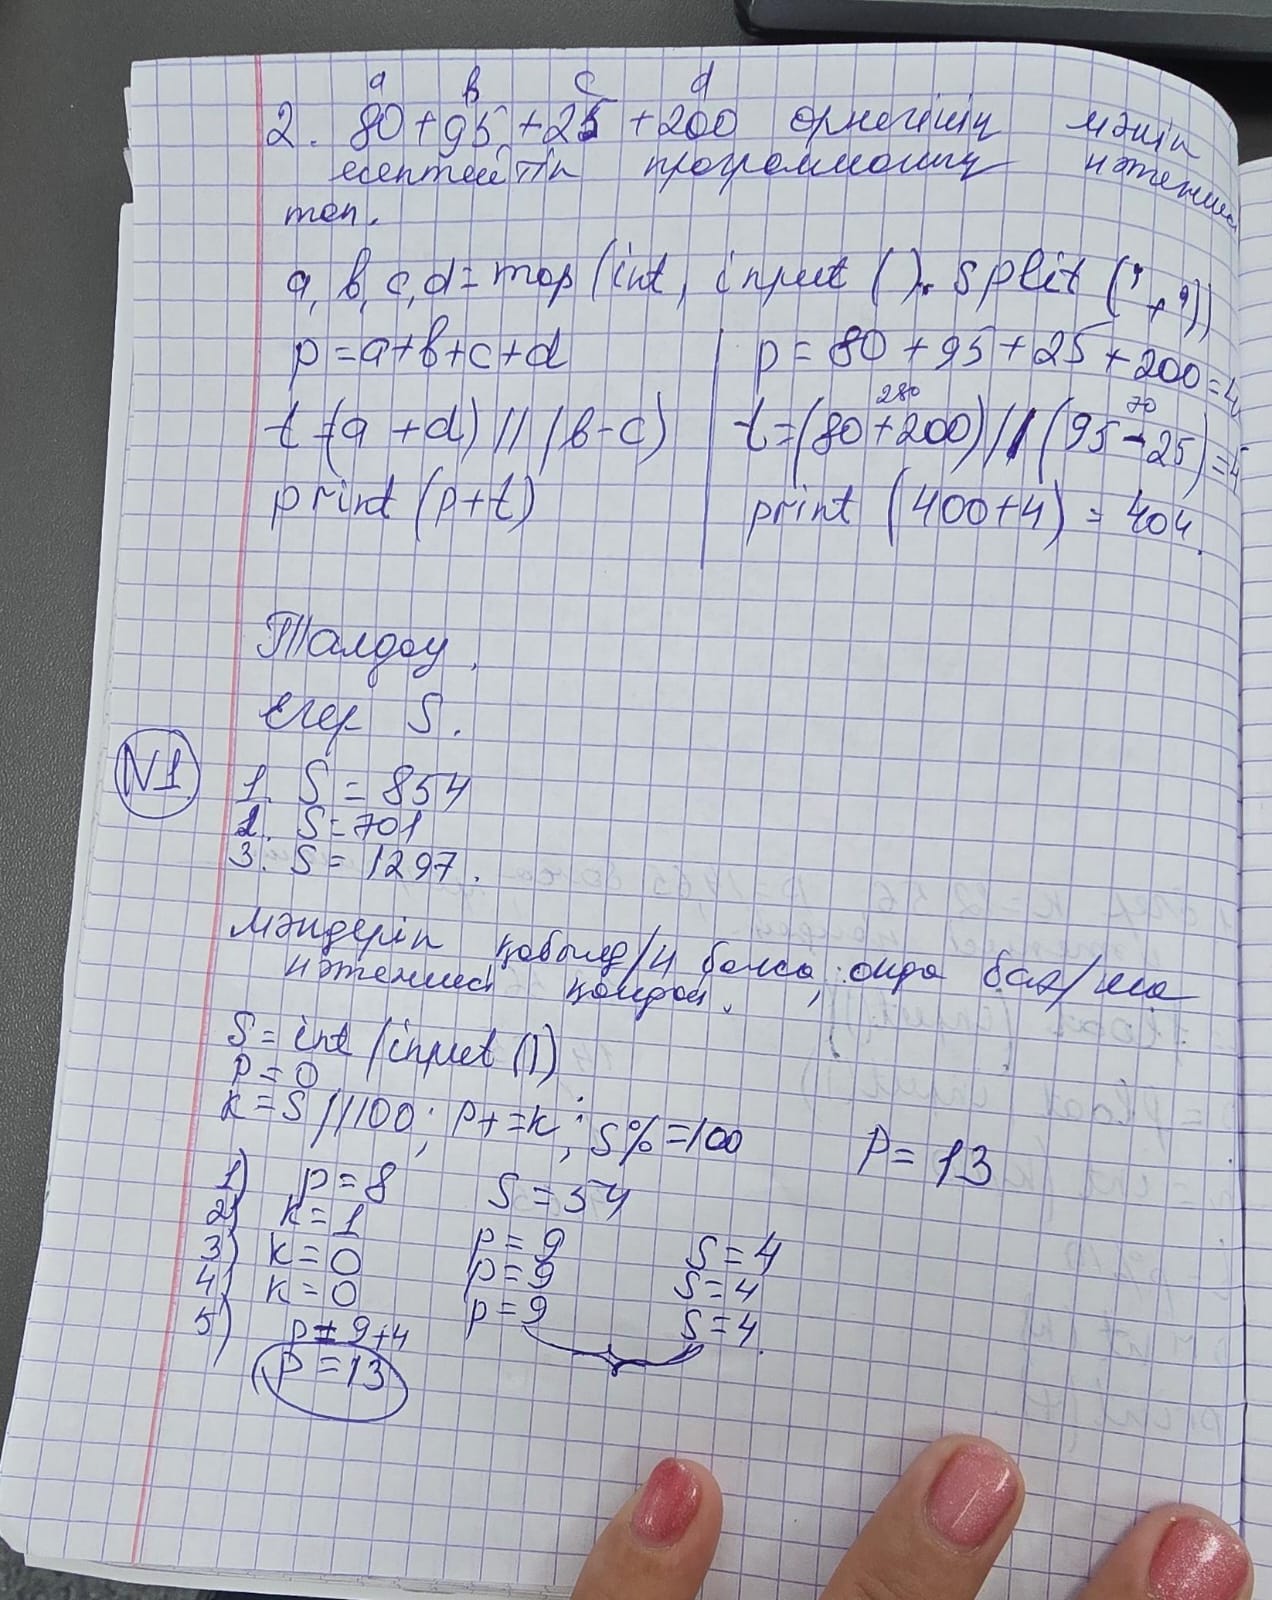 a b c d
2. 80+95+25+200 өрнегінің мәнін
есептейтін программаның нәтижесін
тап.
a, b, c, d = map(int, input().split(","))
p=a+b+c+d
p = 80+95+25+200=4
t=(a+d)//(b-c)
280 70
t=(80+200)//(95-25)=4
print(p+t)
print (400+4) = 404.
Талдау.
Егер S.
N1
1. S = 854
2. S=701
3. S = 1297.
мәндерін қабылд/н болса, онда бағ/ма
нәтижесі қандай.
S = int(input())
P=0
k=S//100; P+=k; S%=100
P = 13
1) p=8 S=54
2) k=1 p=9 S=4
3) k=0 p=9 S=4
4) k=0 p=9 S=4.
5) p=9+4
P=13